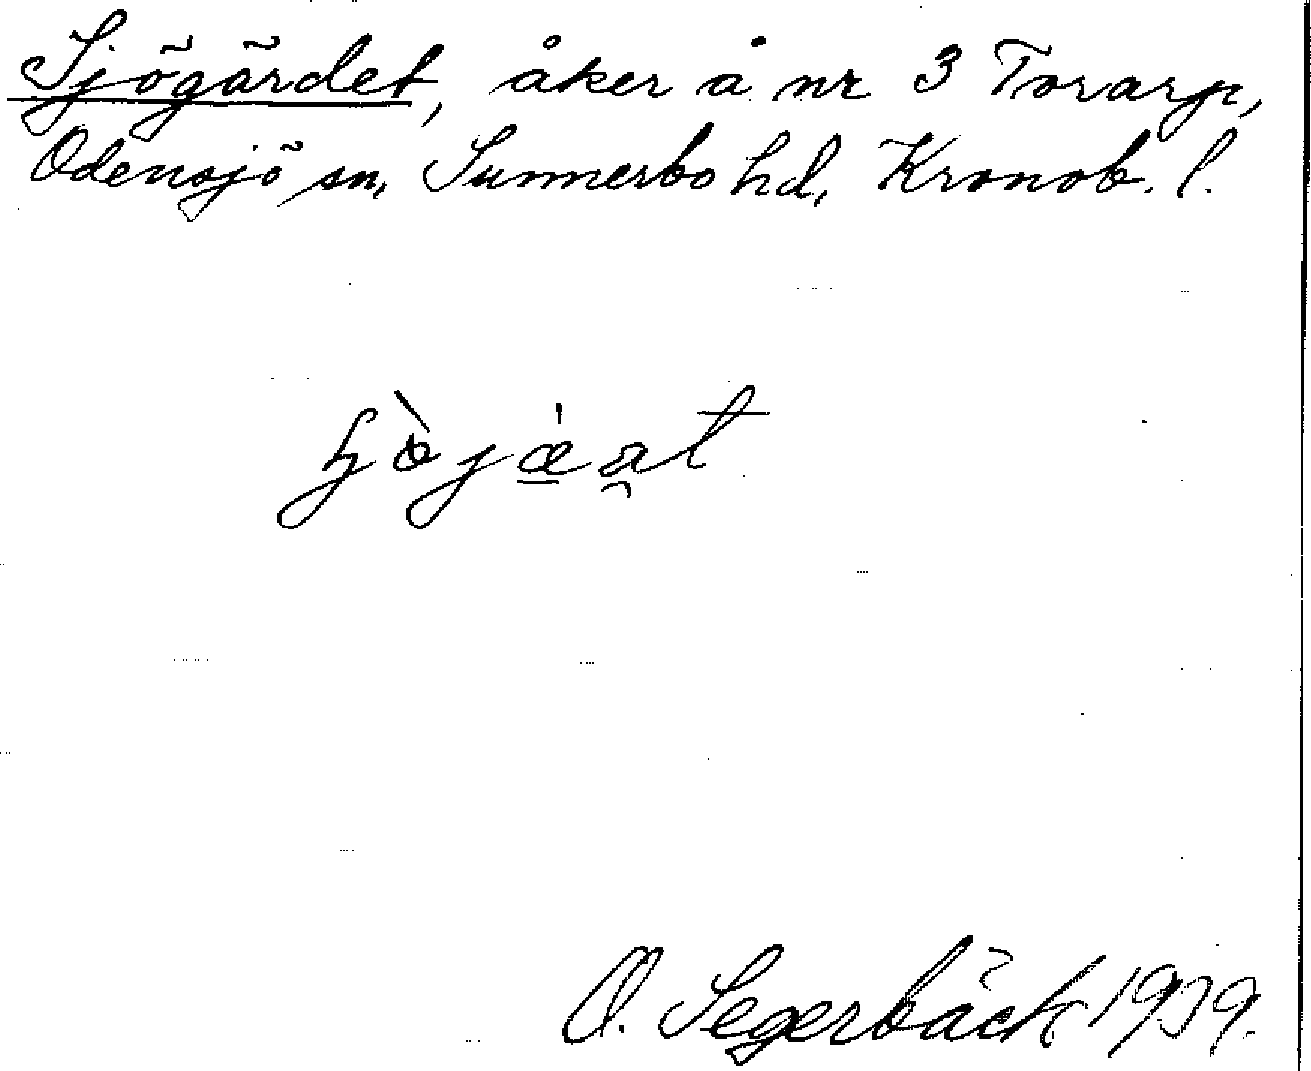 Sjögärdet, åker å nr 3 Torarp,
Odensjö sn, Sunnerbo hd, Kronob. l.
O. Segerbäck 1939.